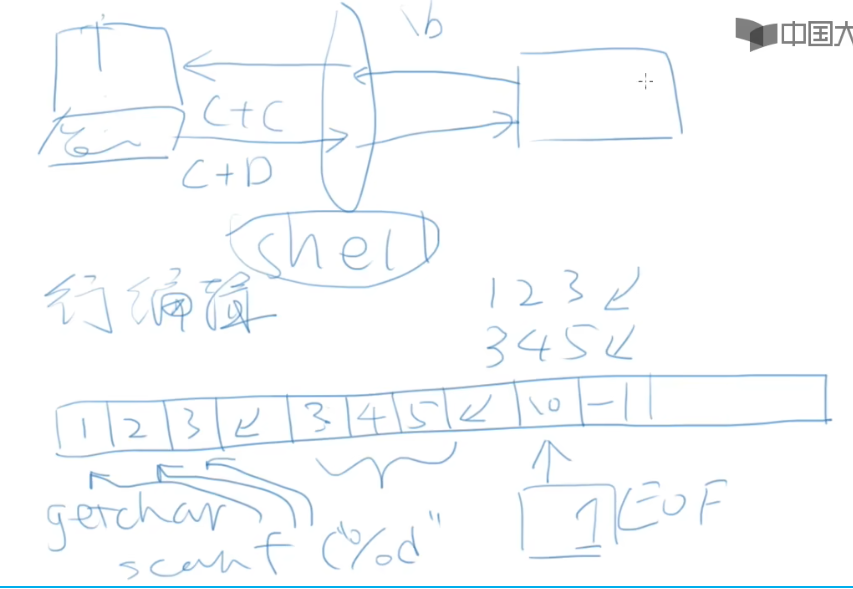 \b
中国大
C+C
C+D
shell
行编辑
123↙
345↙
1 2 3 ↙ 3 4 5 ↙ \0 -1
getchar
scanf("%d"
1 EOF